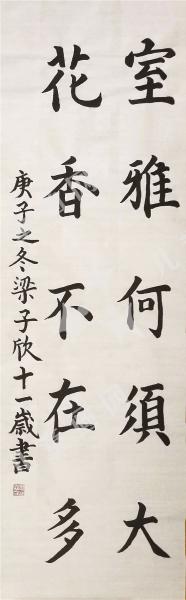 室雅何須大
花香不在多
庚子之冬梁子欣十一歲書